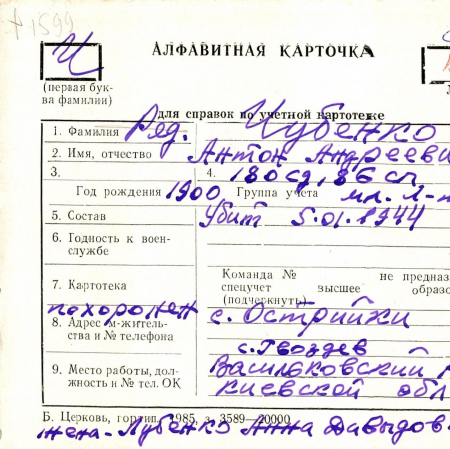 1599
Ч
АЛФАВИТНАЯ КАРТОЧКА
(первая бук-
ва фамилии)
для справок по учетной картотеке
1. Фамилия Ряд. Чубенко
2. Имя, отчество Антон Андрееви
3. 4. 180 сд, 86 сп
Год рождения 1900 Группа учета мл. л-т
5. Состав Убит 5.01.1944
6. Годность к воен-
службе
Команда № не предназ
7. Картотека спецучет высшее образо
(подчеркнуть)
похоронен с. Острийки
8. Адрес м-житель-
ства и № телефона
с. Гвоздев
9. Место работы, дол-
жность и № тел. ОК
Васильковский
киевской обл
Б. Церковь, гортип. 1985, з. 3589—20000
жена - Лубенко Анна Давыдов